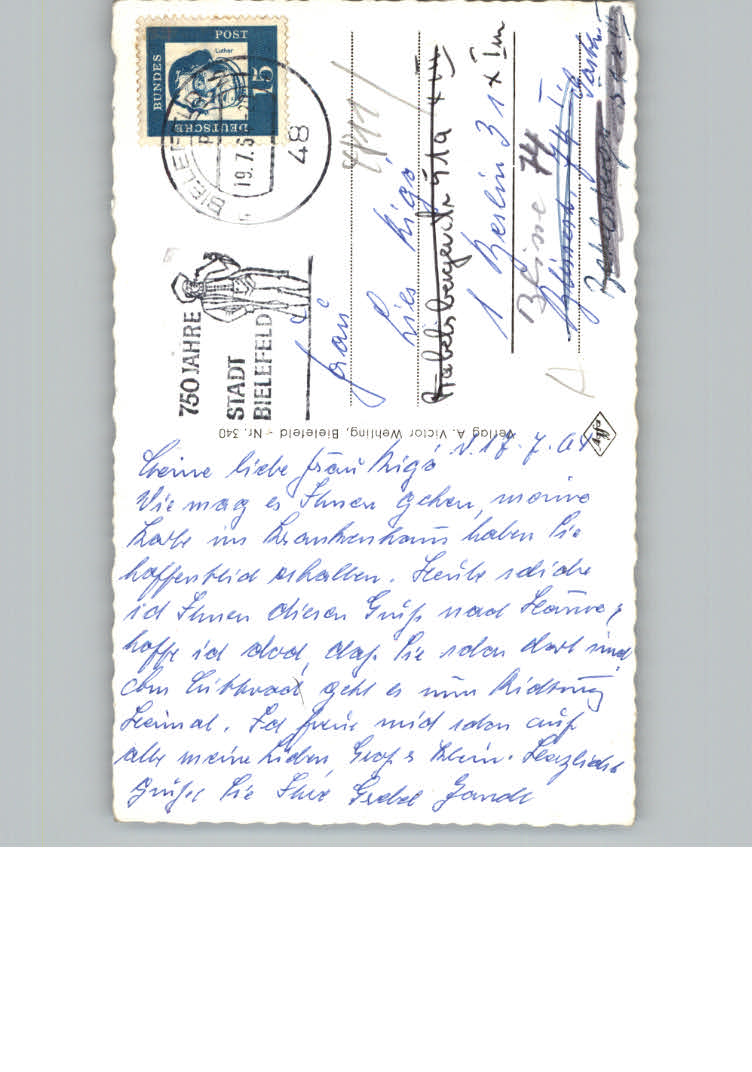 DEUTSCHE
BUNDES
POST
15
Luther
BIELEFELD
19.7.6
48
750 JAHRE
STADT
BIELEFELD
Frau
Lies Rigó
Babelsbergerstr 41a
1 Berlin 31
Blisse 74
Verlag A. Victor Wehling, Bielefeld - Nr. 340
Agfa
d. 17.7.64
Meine liebe Frau Rigó
Wie mag es Ihnen gehen, meine
Karte ins Krankenhaus haben Sie
hoffentlich erhalten. Heute schicke
ich Ihnen diesen Gruß nach Hause,
hoffe ich doch, daß Sie schon dort sind.
geht es nun Richtung
Heimat. Ich freue mich schon auf
alle meine Lieben Groß & Klein. Herzlichst
Grüßt Sie Ihre Gretel